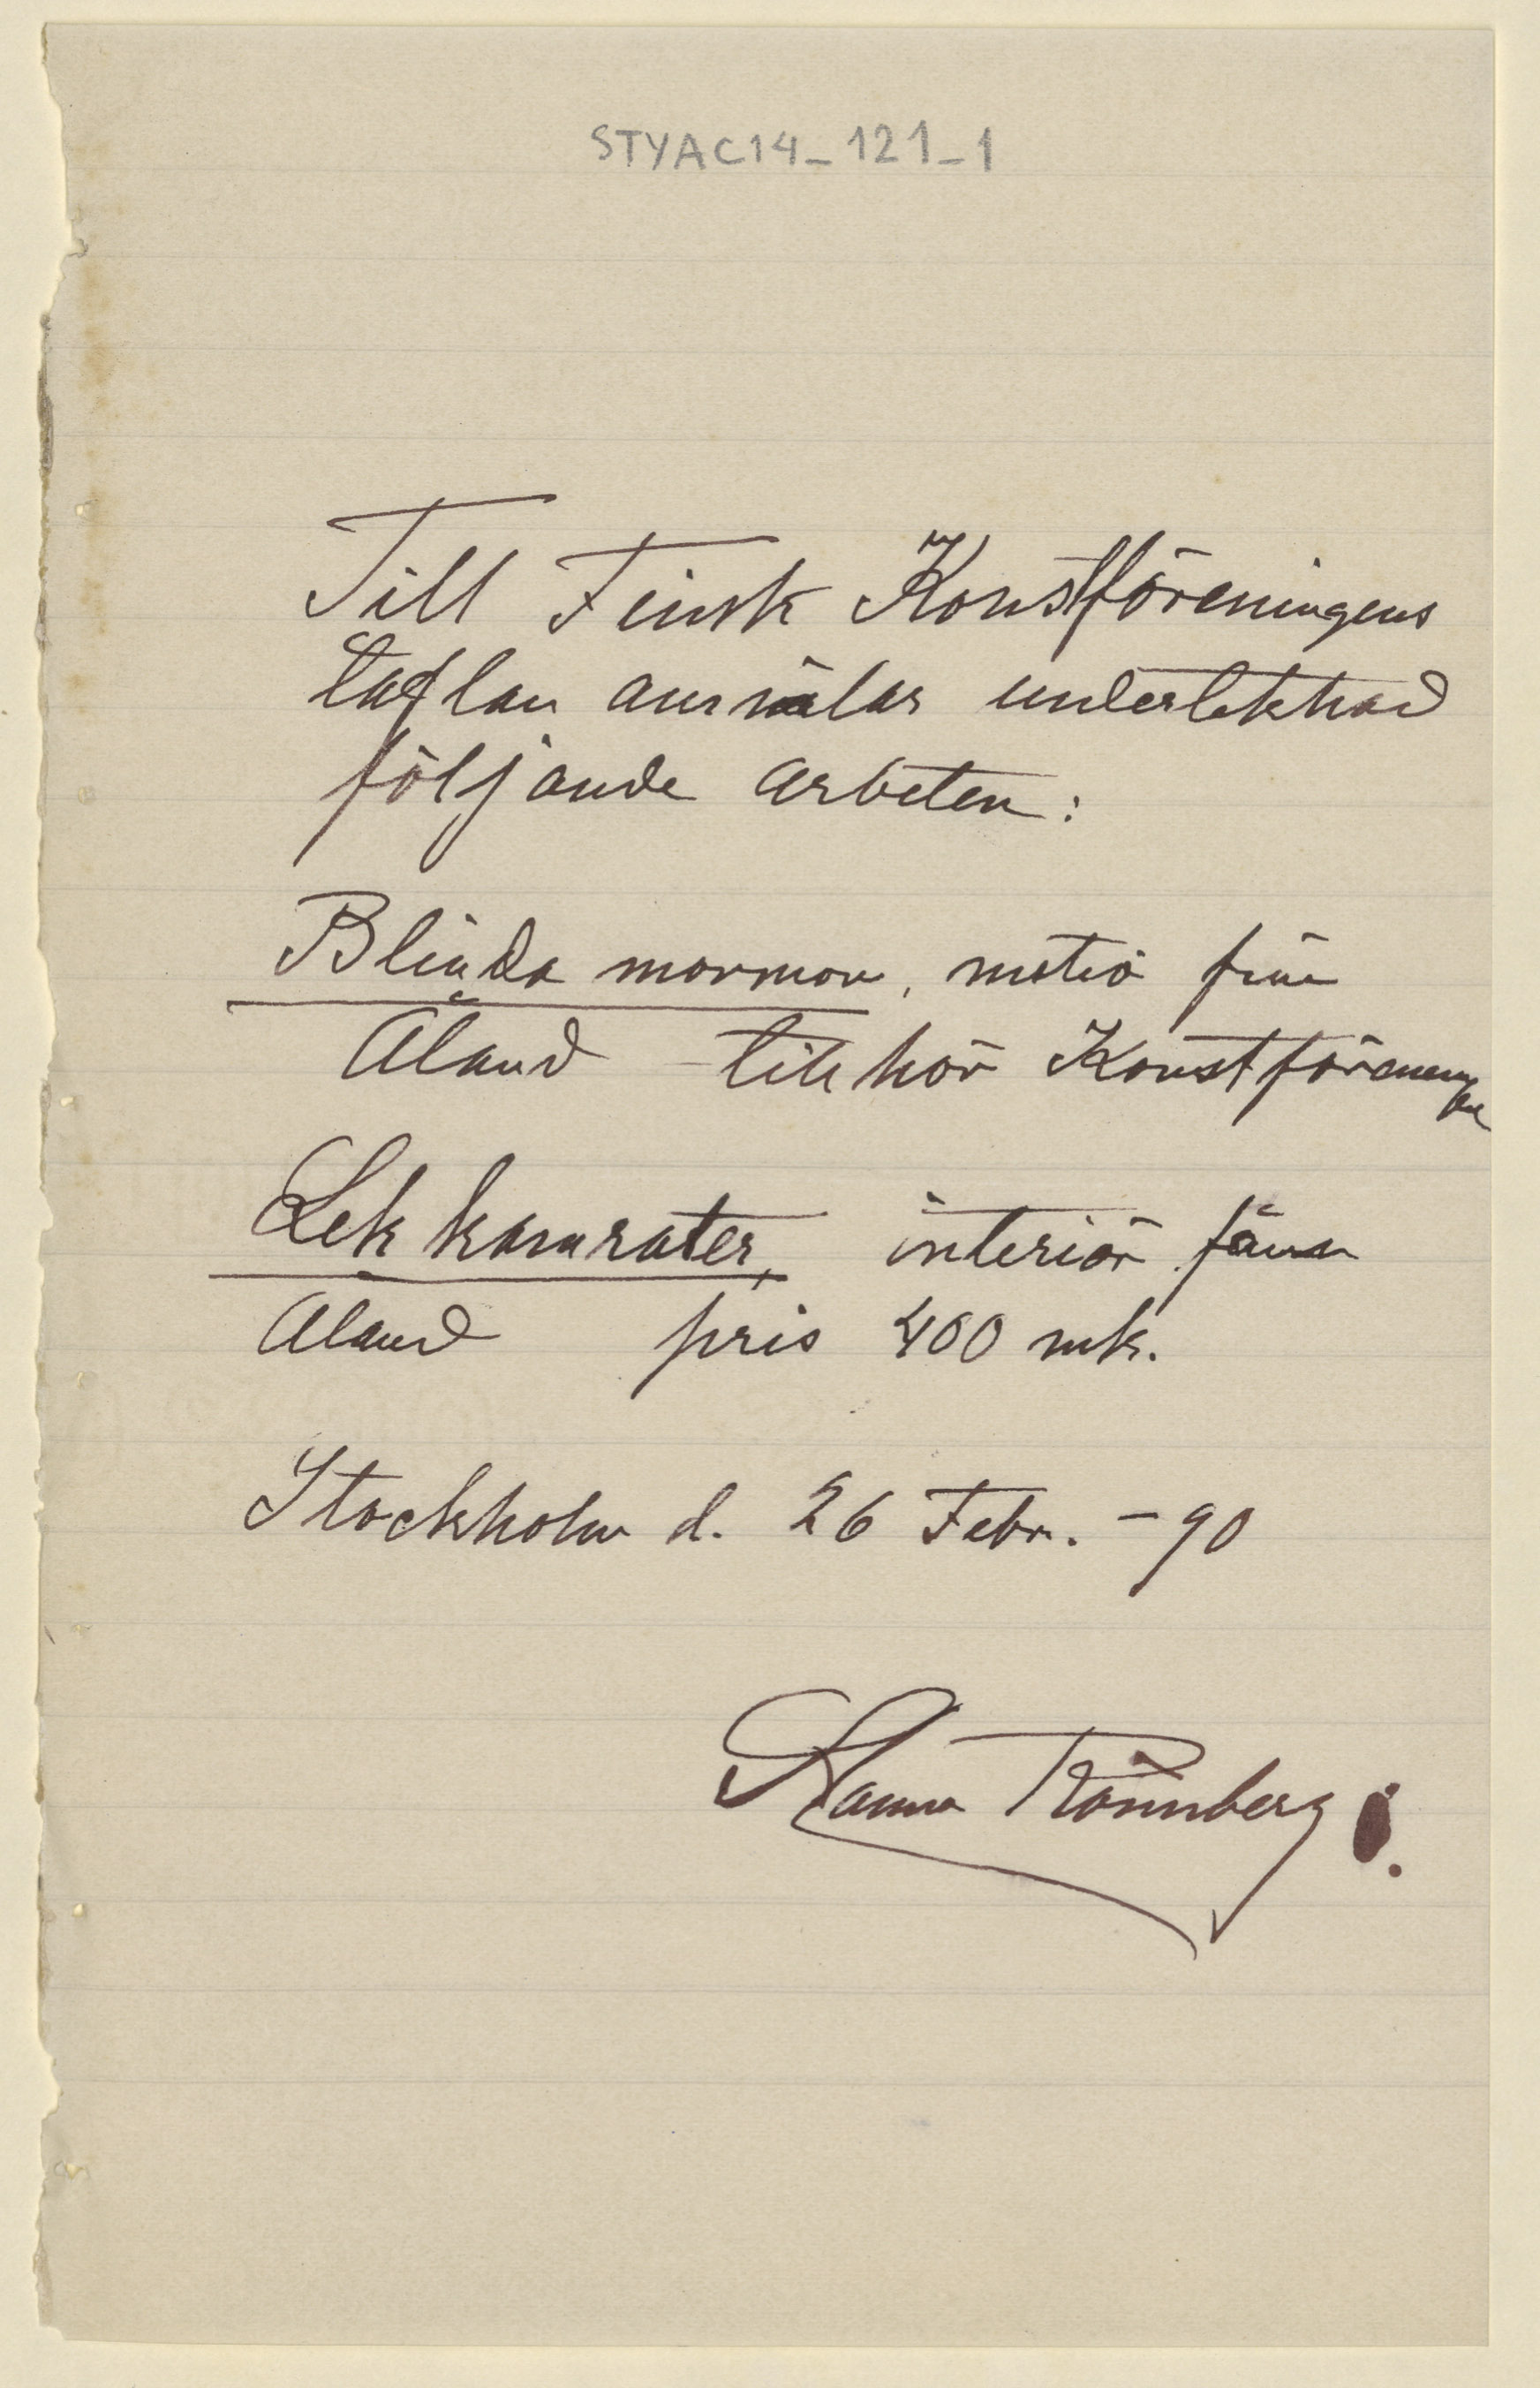 STYAC14_121_1
Till Finsk Konstföreningens
taflan anmälar undertecknad
följande arbeten:
Blinda mormor, motiv från
Åland tillhör Konstföreningen
Lekkamrater, interiör från
Åland pris 400 mk.
Stockholm d. 26 Febr. -90
Hanna Rönnberg